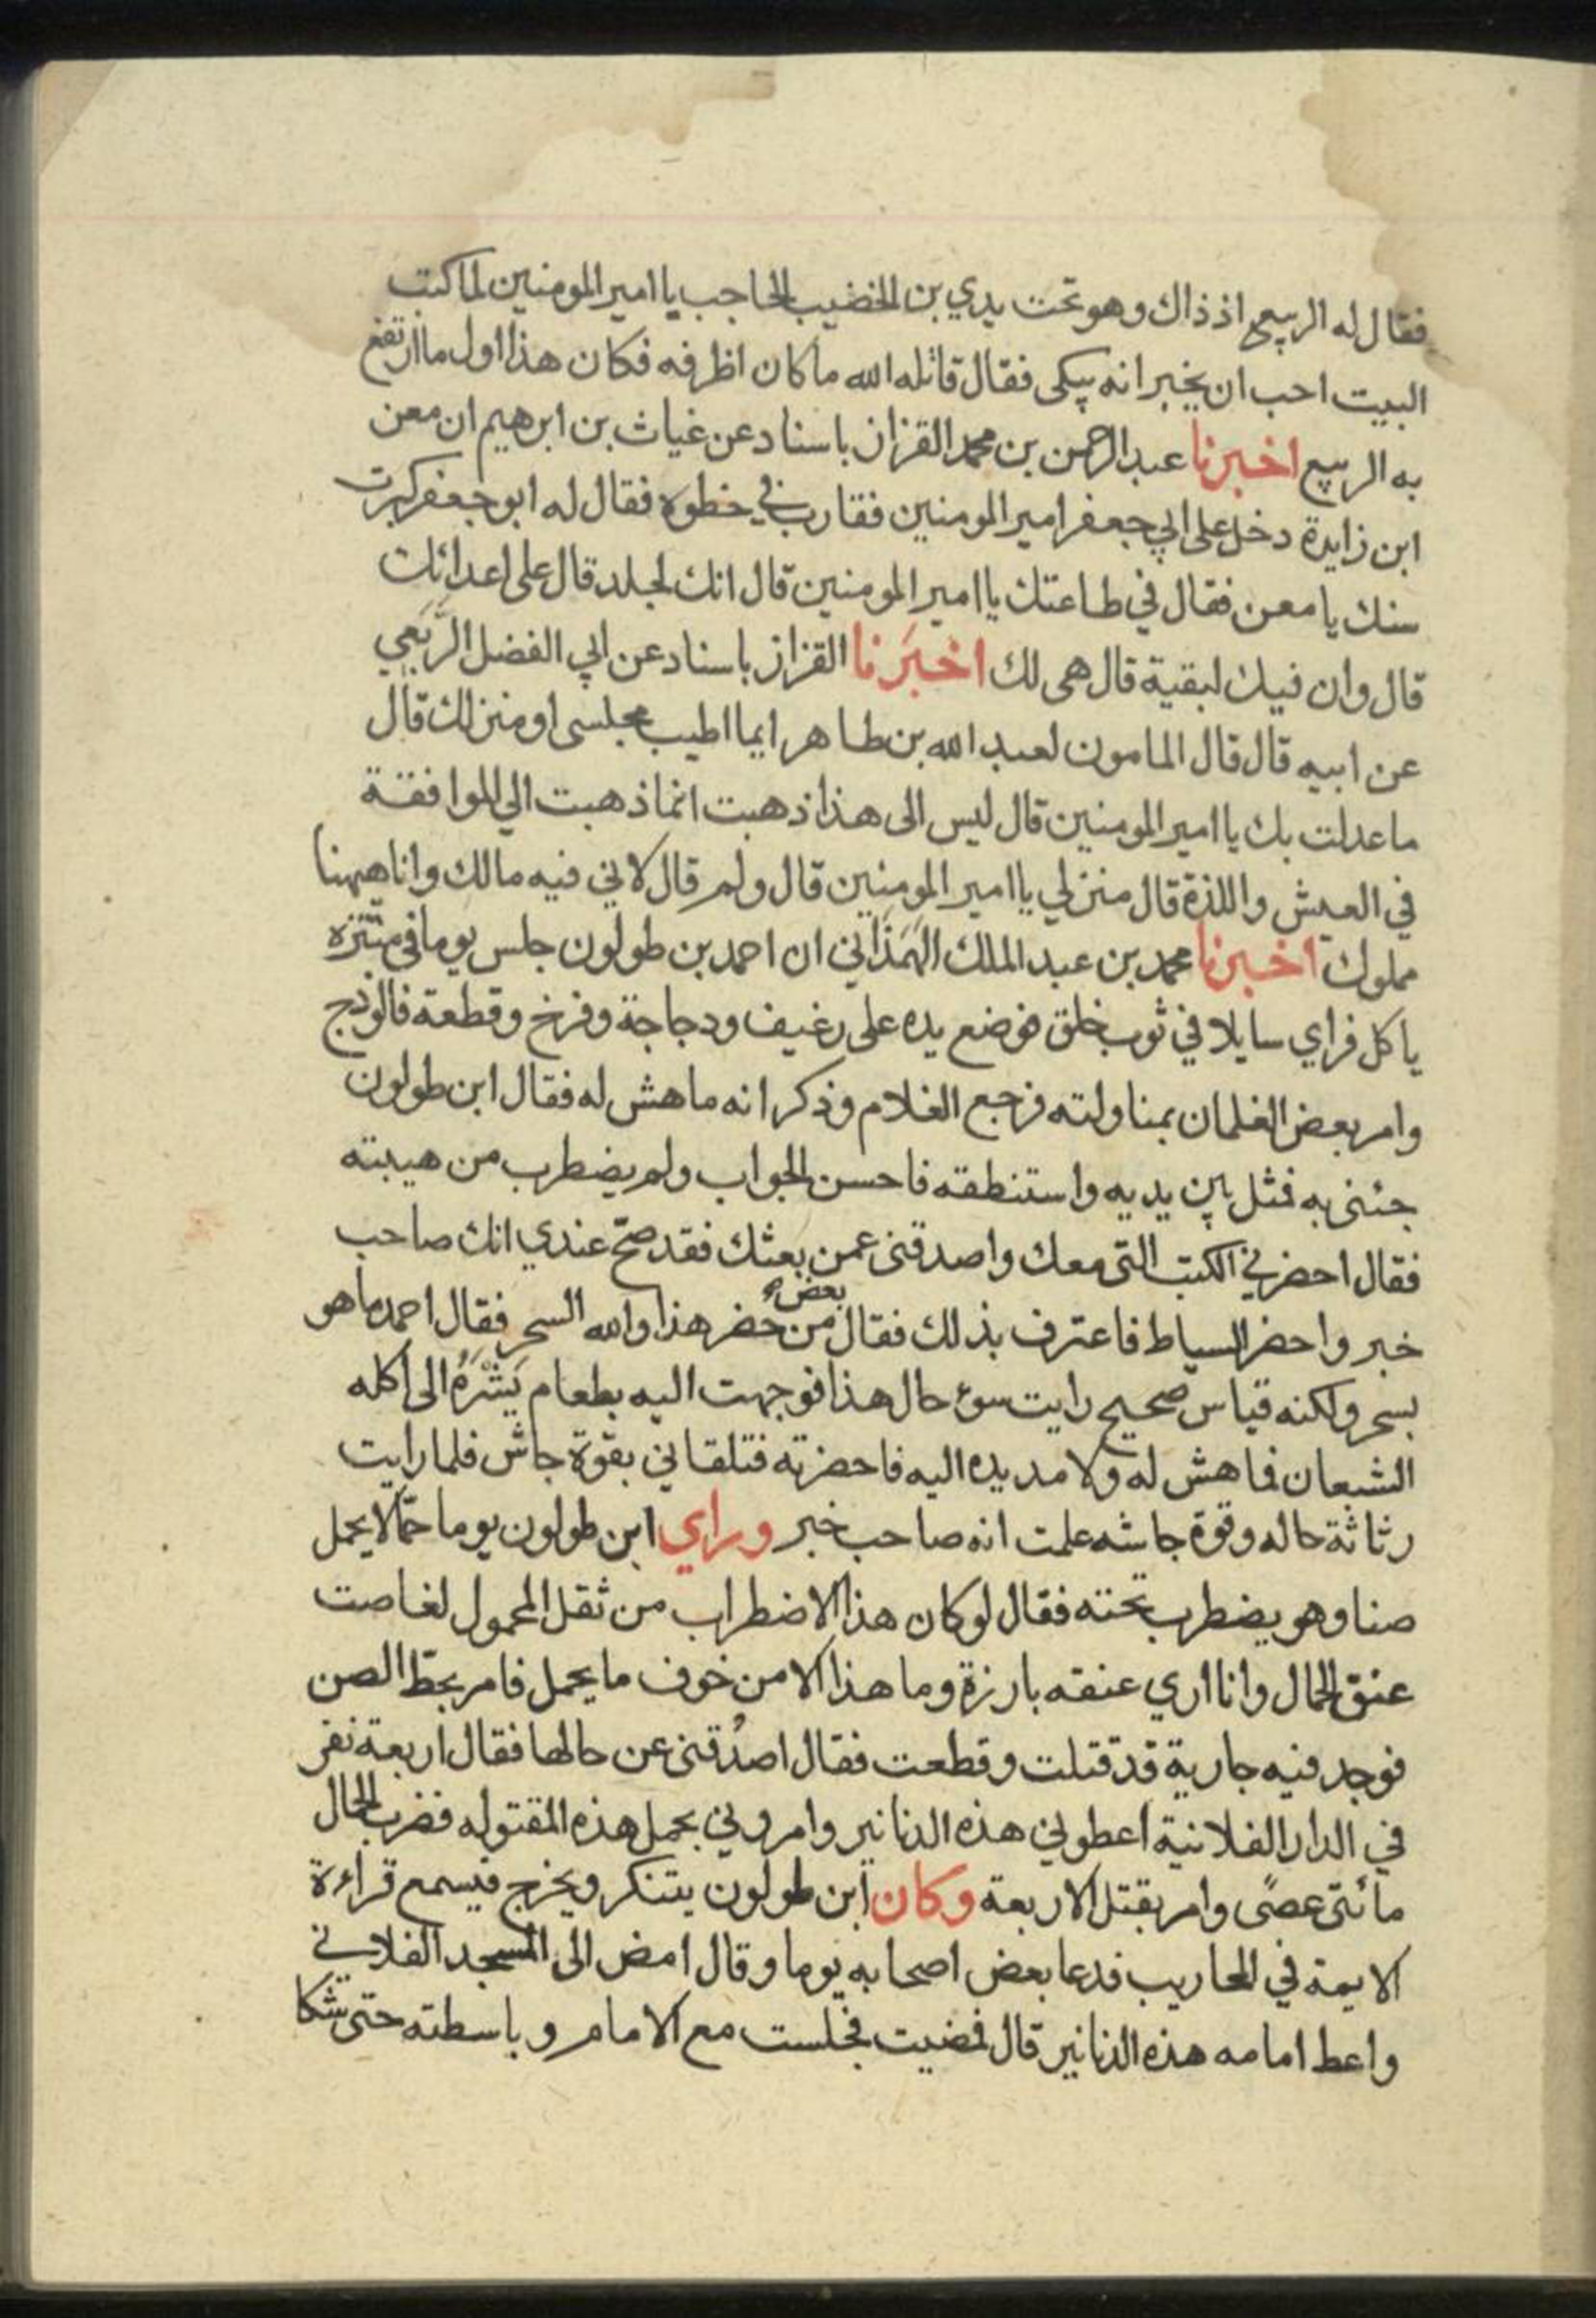 فقال له الربيع اذ ذاك وهو تحت يدي بن الخضيب الحاجب يا امير المومنين لما كتب
البيت احب ان يخبر انه يبكى فقال قاتله الله ما كان اظرفه فكان هذا اول ما ارتفع
به الربيع اخبرنا عبد الرحمن بن محمد القزاز باسناد عن غياث بن ابرهيم ان معن
ابن زايدة دخل على ابي جعفر امير المومنين فقارب في خطوه فقال له ابو جعفر كبرت
سنك يا معن فقال في طاعتك يا امير المومنين قال انك لجلد قال على اعدائك
قال وان فيك لبقية قال هى لك اخبَرنا القزاز باسناد عن ابي الفضل الرَّبَعي
عن ابيه قال قال المامون لعبد الله بن طاهر ايما اطيب مجلسى او منزلك قال
ما عدلت بك يا امير المومنين قال ليس الى هذا ذهبت انما ذهبت الي الموافقة
في العيش واللذة قال منزلي يا امير المومنين قال ولم قال لاني فيه مالك وانا هيهنا
مملوك اخبرنا محمد بن عبد الملك الهَمَذَاني ان احمد بن طولون جلس يوما في متنزه
ياكل فراي سايلا في ثوب خلق فوضع يده على رغيف ودجاجة وفرخ وقطعة فالوذج
وامر بعض الغلمان بمناولته فرجع الغلام وذكر انه ما هش له فقال ابن طولون
جئنى به فمثل بين يديه واستنطقه فاحسن الجواب ولم يضطرب من هيبته
فقال احضر لي الكتب التى معك واصدقنى عمن بعثك فقد صحّ عندي انك صاحب
خبر واحضر السياط فاعترف بذلك فقال بعض من حضر هذا والله السحر فقال احمد ما هو
بسحر ولكنه قياس صحيح رايت سوء حال هذا فوجهت اليه بطعام يَشْرَهُ الى اكله
الشبعان فما هش له ولا مد يده اليه فاحضرته فتلقاني بقوة جاش فلما رايت
رثاثة حاله وقوة جاشه علمت انه صاحب خبر وراي ابن طولون يوما حمّالا يحمل
صنا وهو يضطرب تحته فقال لو كان هذا الاضطراب من ثقل المحمول لغاصت
عنق الحمال وانا اري عنقه بارزة وما هذا الا من خوف ما يحمل فامر بحطّ الصن
فوجد فيه جارية قد قتلت وقطعت فقال اصدُقنى عن حالها فقال اربعة نفر
في الدار الفلانية اعطوني هذه الدنانير وامروني بحمل هذه المقتوله فضرب الحمال
مائتى عصًى وامر بقتل الاربعة وكان ابن طولون يتنكر ويخرج فيسمع قراءة
الايمة في المحاريب فدعا بعض اصحابه يوما وقال امض الى المسجد الفلاني
واعط امامه هذه الدنانير قال فمضيت فجلست مع الامام وباسطته حتى شكا